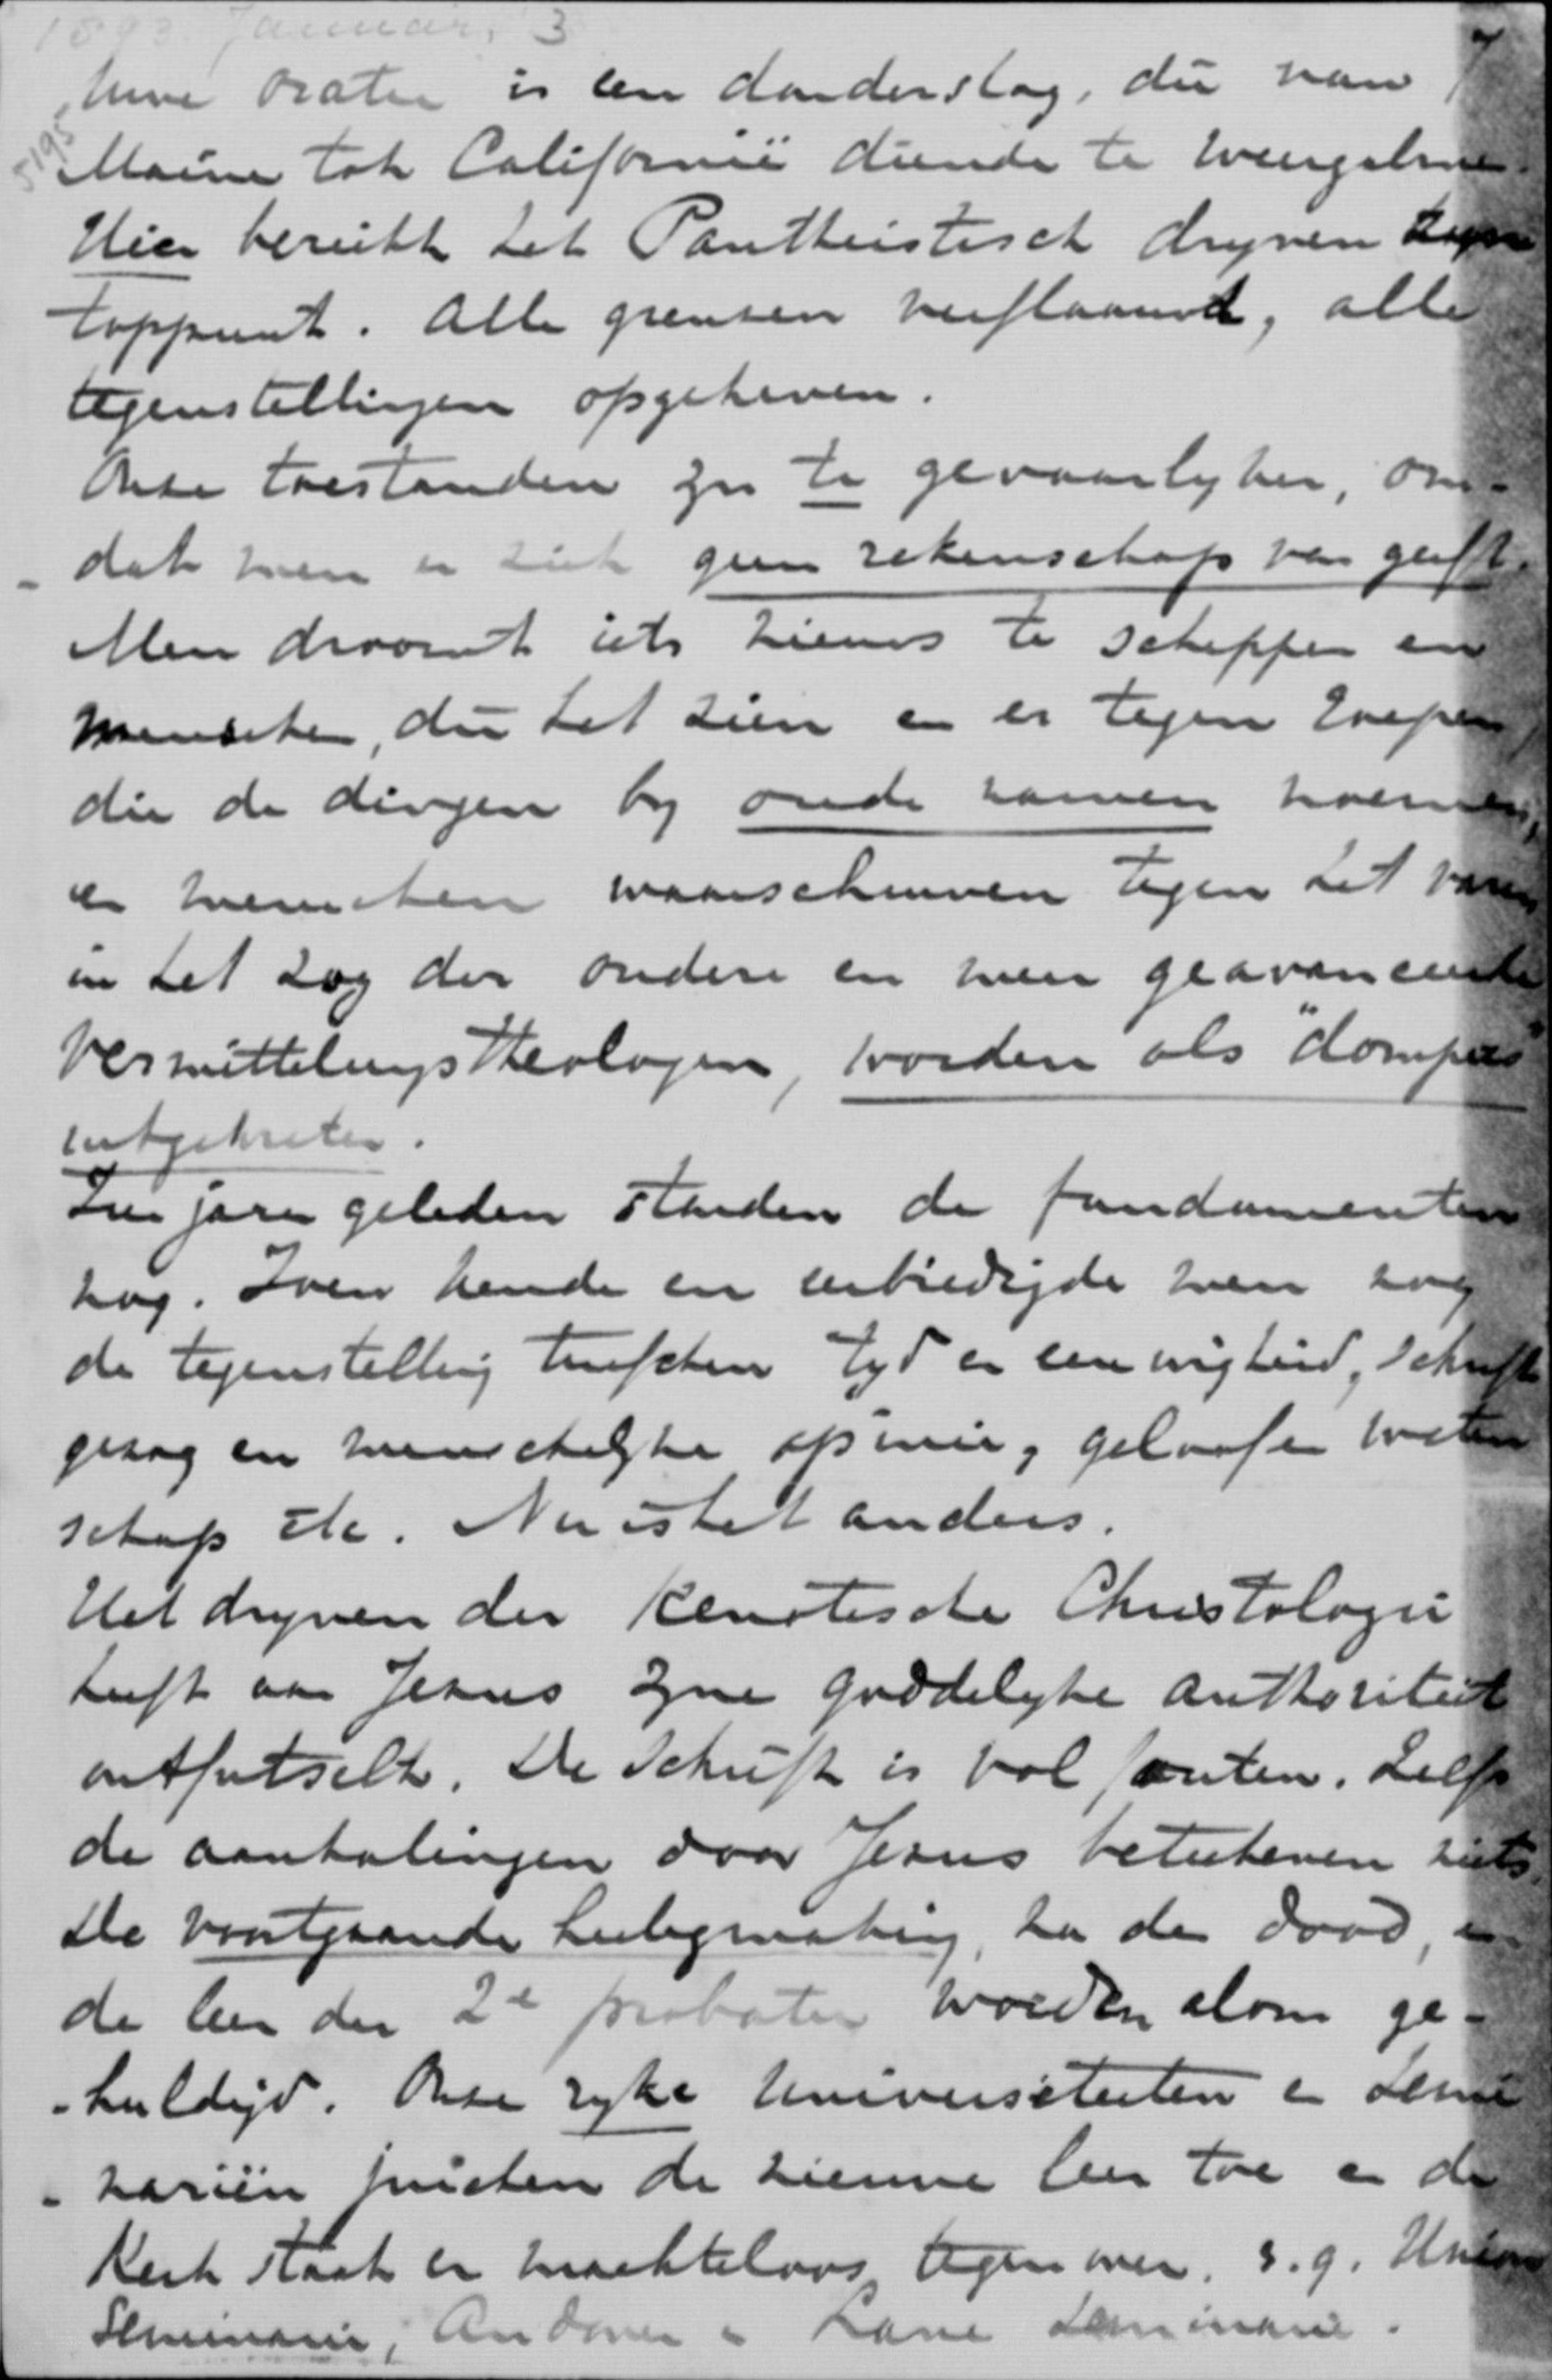 1893 Januari, 3
5195
Uwe oratie is een donderslag, die van
Maine tot Californië diende te weergalmen.
Hier bereikt het Pantheistisch dryven
toppunt. Alle grenzen verflaauwd, alle
tegenstellingen opgeheven.
Onze toestanden zyn te gevaarlyker, om-
-dat men er zich geen rekenschap van geeft.
Men droomt iets nieuws te scheppen en
menschen, die het zien en er tegen roepen,
die de dingen by oude namen noemen,
en menschen waarschuwen tegen het varen
in het zog der oudere en meer geavanceerde
Vermittelungstheologen, worden als "dompers"
uitgekreten.
Tien jaren geleden stonden de fundamenten
nog. Toen kende en eerbiedigde men nog
de tegenstelling tusschen tyd en eeuwigheid, Schrift
gezag en menschelyke opinie, geloof en weten
schap etc. Nu is het anders.
Het dryven der Kenotische Christologie
heeft aan Jezus zyne goddelyke authoriteit
ontfutseld. De Schrift is vol fouten. Zelfs
de aanhalingen door Jezus beteekenen niets.
De voortgaande heiligmaking, na den dood, en
de leer der 2e probatie worden alom ge-
-huldigd. Onze ryke Universiteiten en Semi
-nariën juichen de nieuwe leer toe en de
Kerk staat er machteloos tegenover. s.g. Union
Seminarie, Andover en Lane Seminarie.